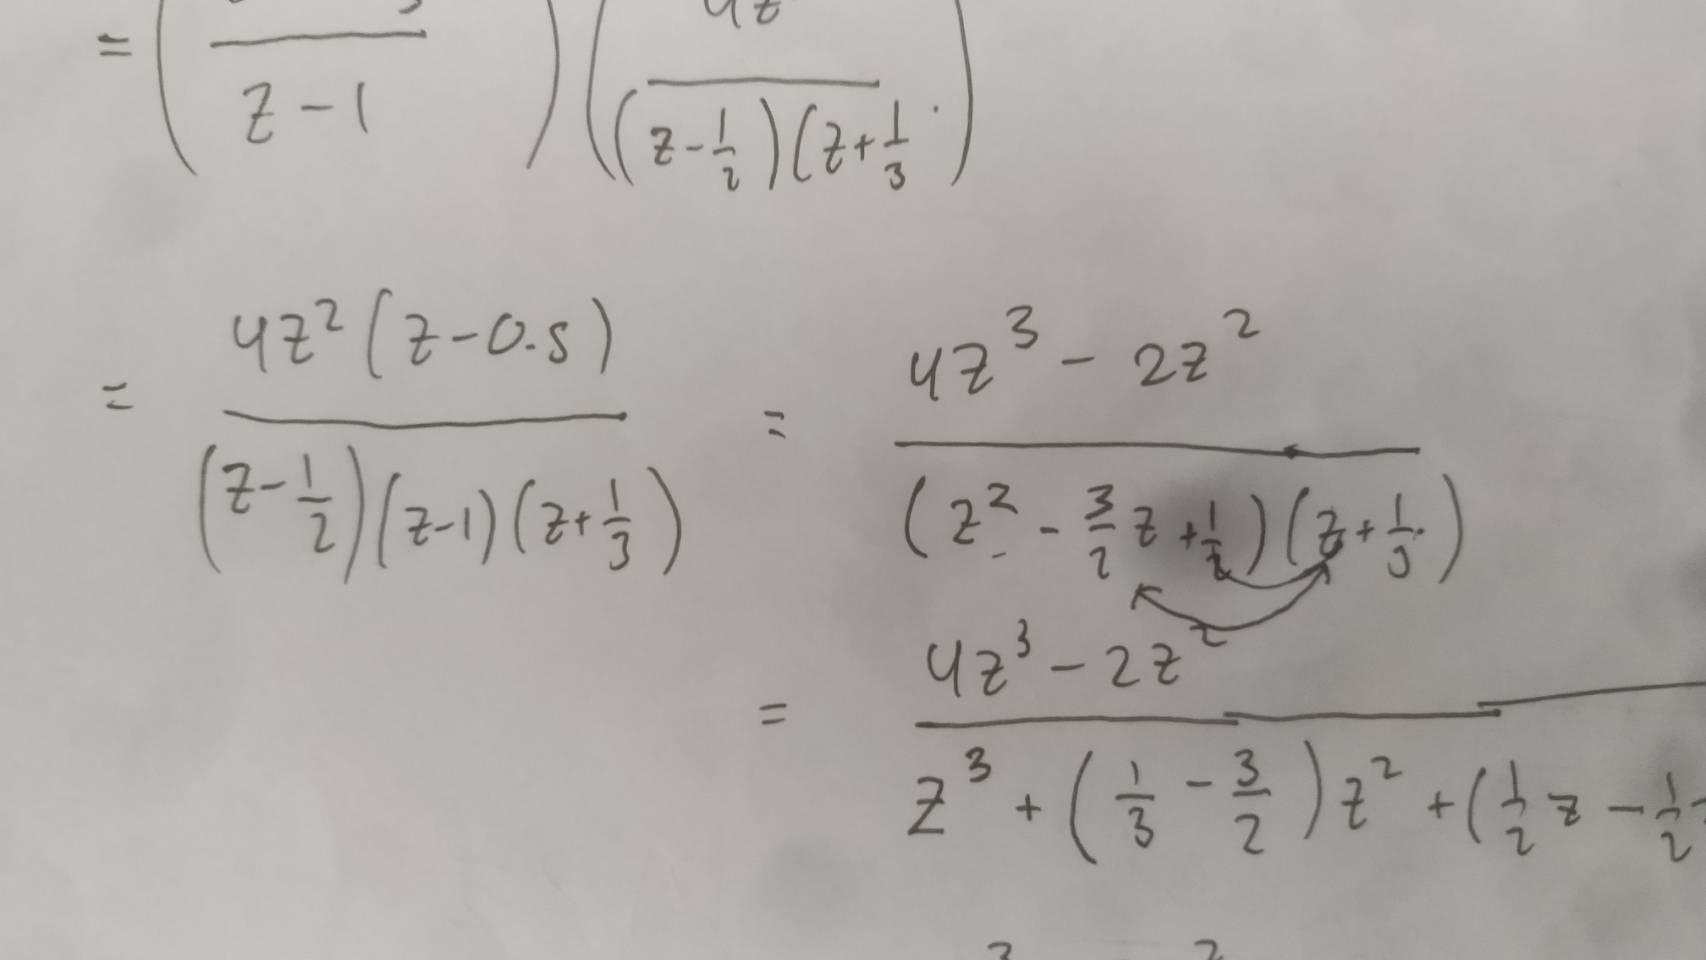 = ( / z - 1 ) ( 4z / (z - 1/2)(z + 1/3) )
= 4z² (z - 0.5) / (z - 1/2)(z - 1)(z + 1/3) = 4z³ - 2z² / (z² - 3/2 z + 1/2)(z + 1/3)
= 4z³ - 2z² / z³ + (1/3 - 3/2) z² + (1/2 z - 1/2
3 2